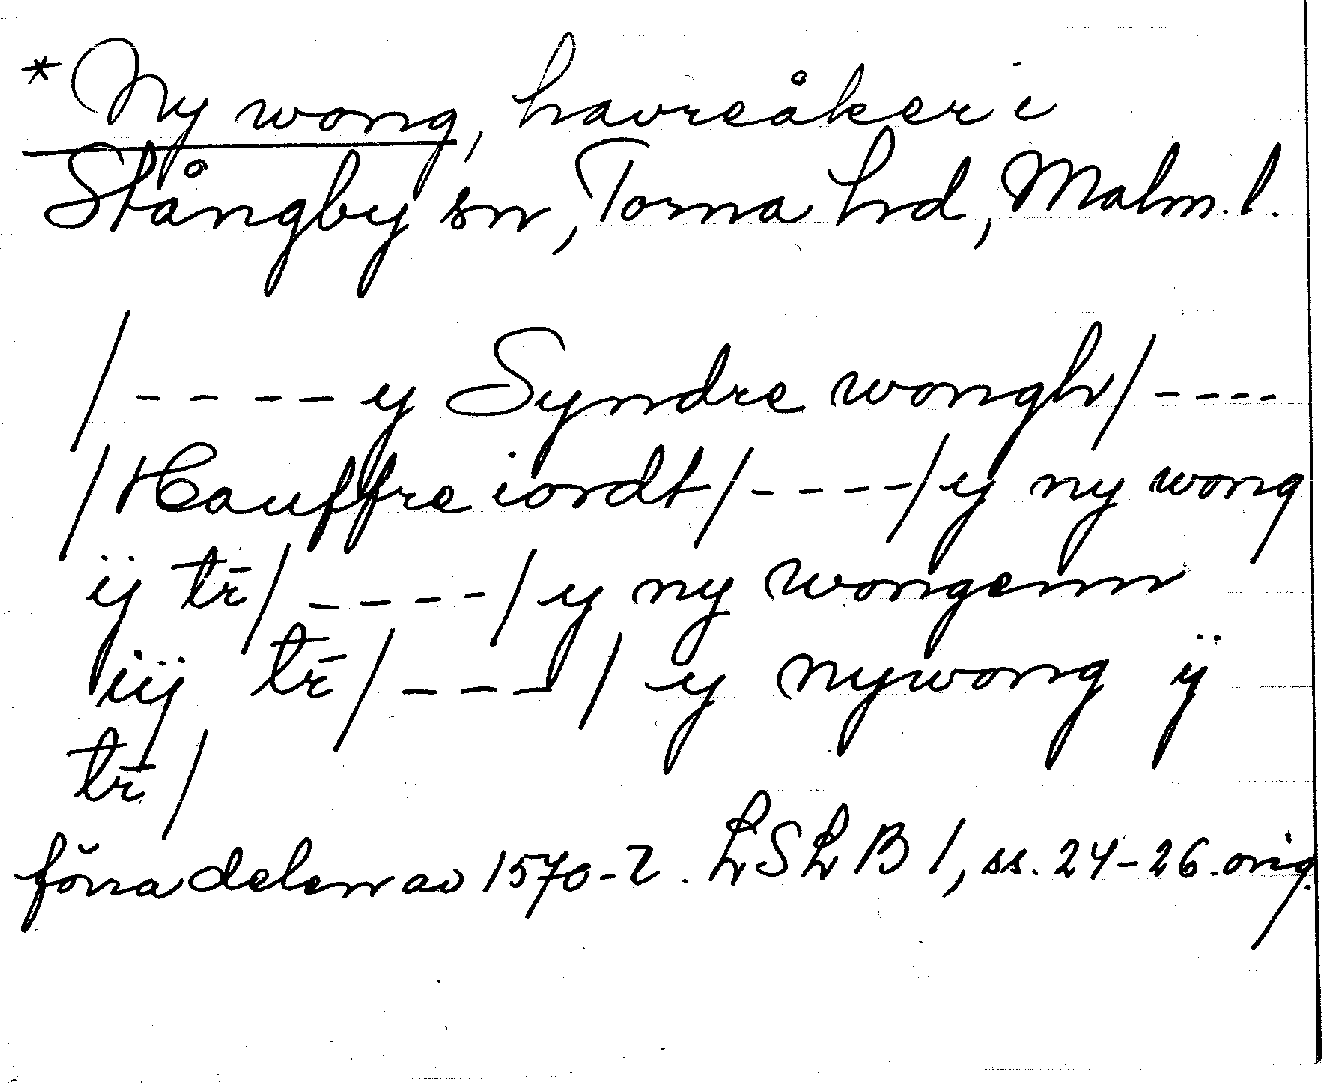 * Ny wong, havreåker i
Stångby sn, Torna hrd, Malm. l.
/ - - - - y Syndre wongh / - - - -
/ Hauffre iordt / - - - - / y ny wong
ij tr̄ / - - - - / y ny wongenn
iij tr̄ / - - - / y nywong ij
tr̄ /
förra delen av 1570-t. LSLB 1, ss. 24-26. orig.